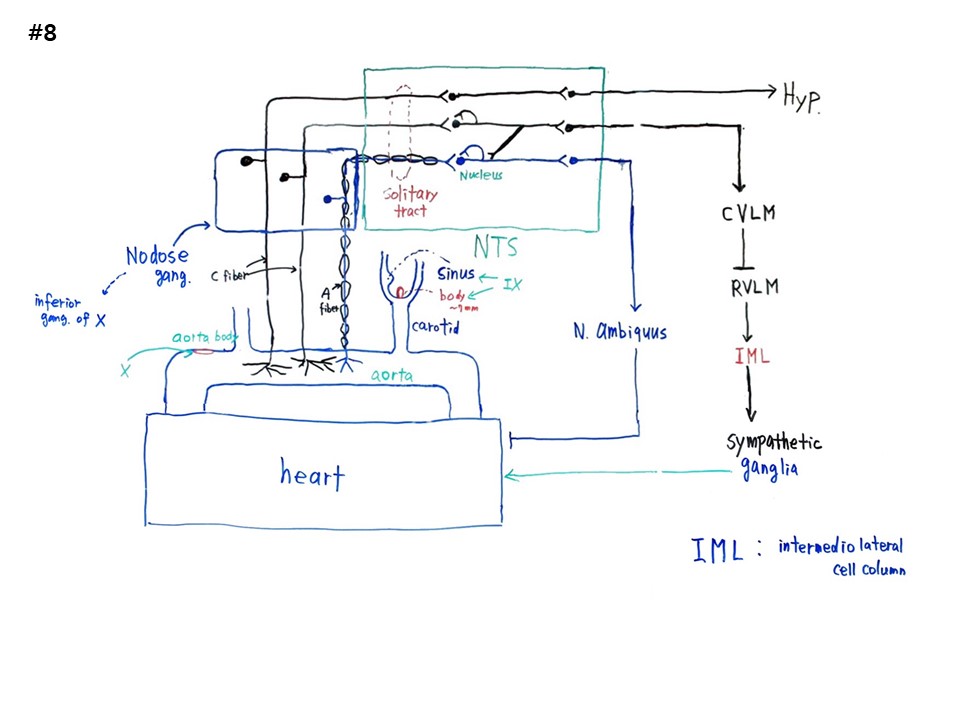 #8
Hyp.
Solitary
tract
Nucleus
NTS
CVLM
RVLM
IML
sympathetic
ganglia
Nodose
gang.
inferior
gang. of X
C fiber
A
fiber
sinus
body
~7mm
IX
carotid
aorta body
X
aorta
N. Ambiquus
heart
IML : intermedio lateral
cell column